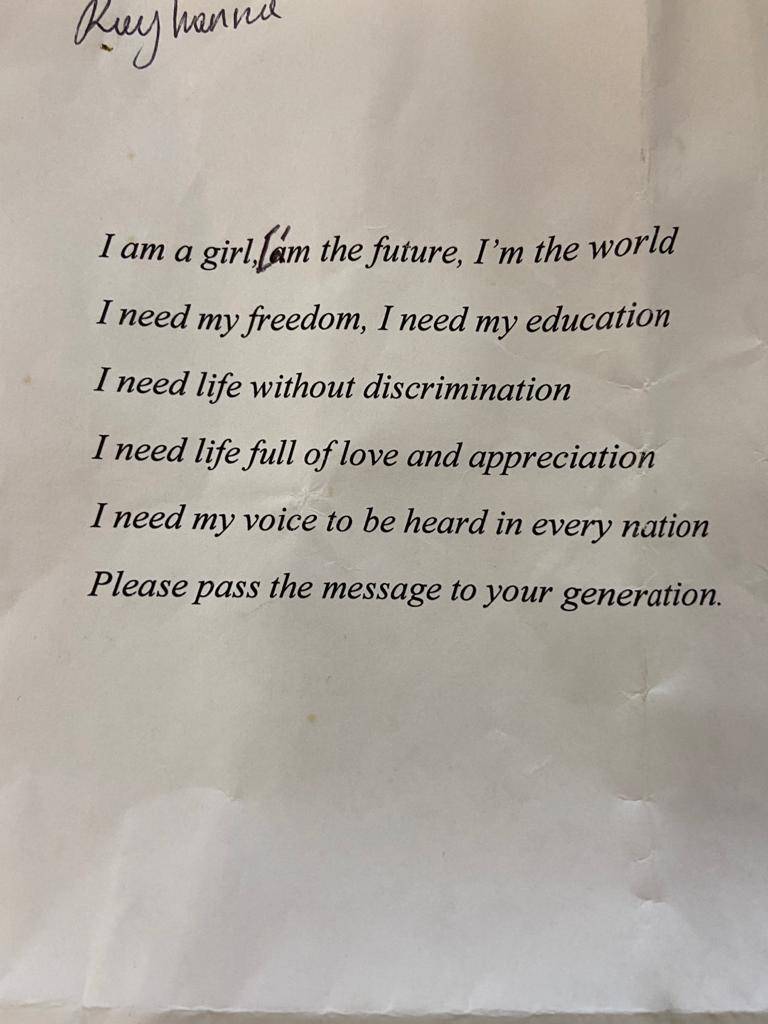 I am a girl, I'am the future, I’m the world
I need my freedom, I need my education
I need life without discrimination
I need life full of love and appreciation
I need my voice to be heard in every nation
Please pass the message to your generation.